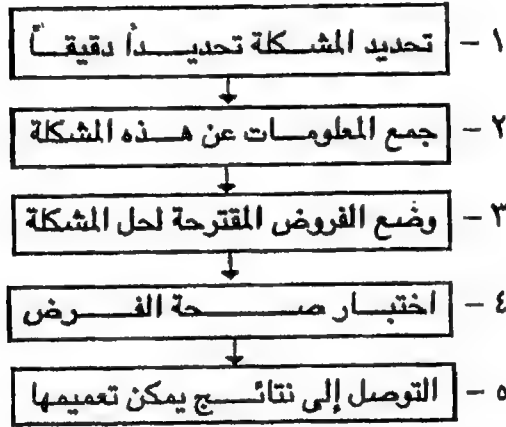 ١ - تحديد المشكلة تحديداً دقيقاً
٢ - جمع المعلومات عن هذه المشكلة
٣ - وضع الفروض المقترحة لحل المشكلة
٤ - اختبار صحة الفرض
٥ - التوصل إلى نتائج يمكن تعميمها